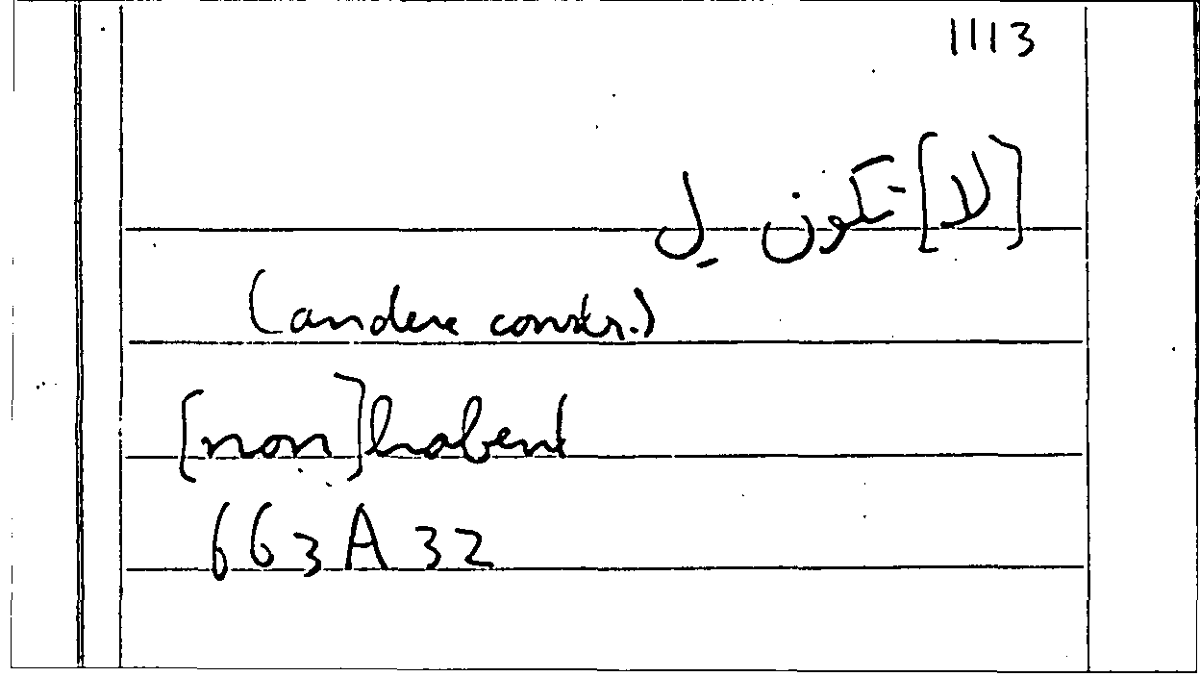 1113
[لا] تكون لـ
(andere constr.)
[non] habent
663 A 32